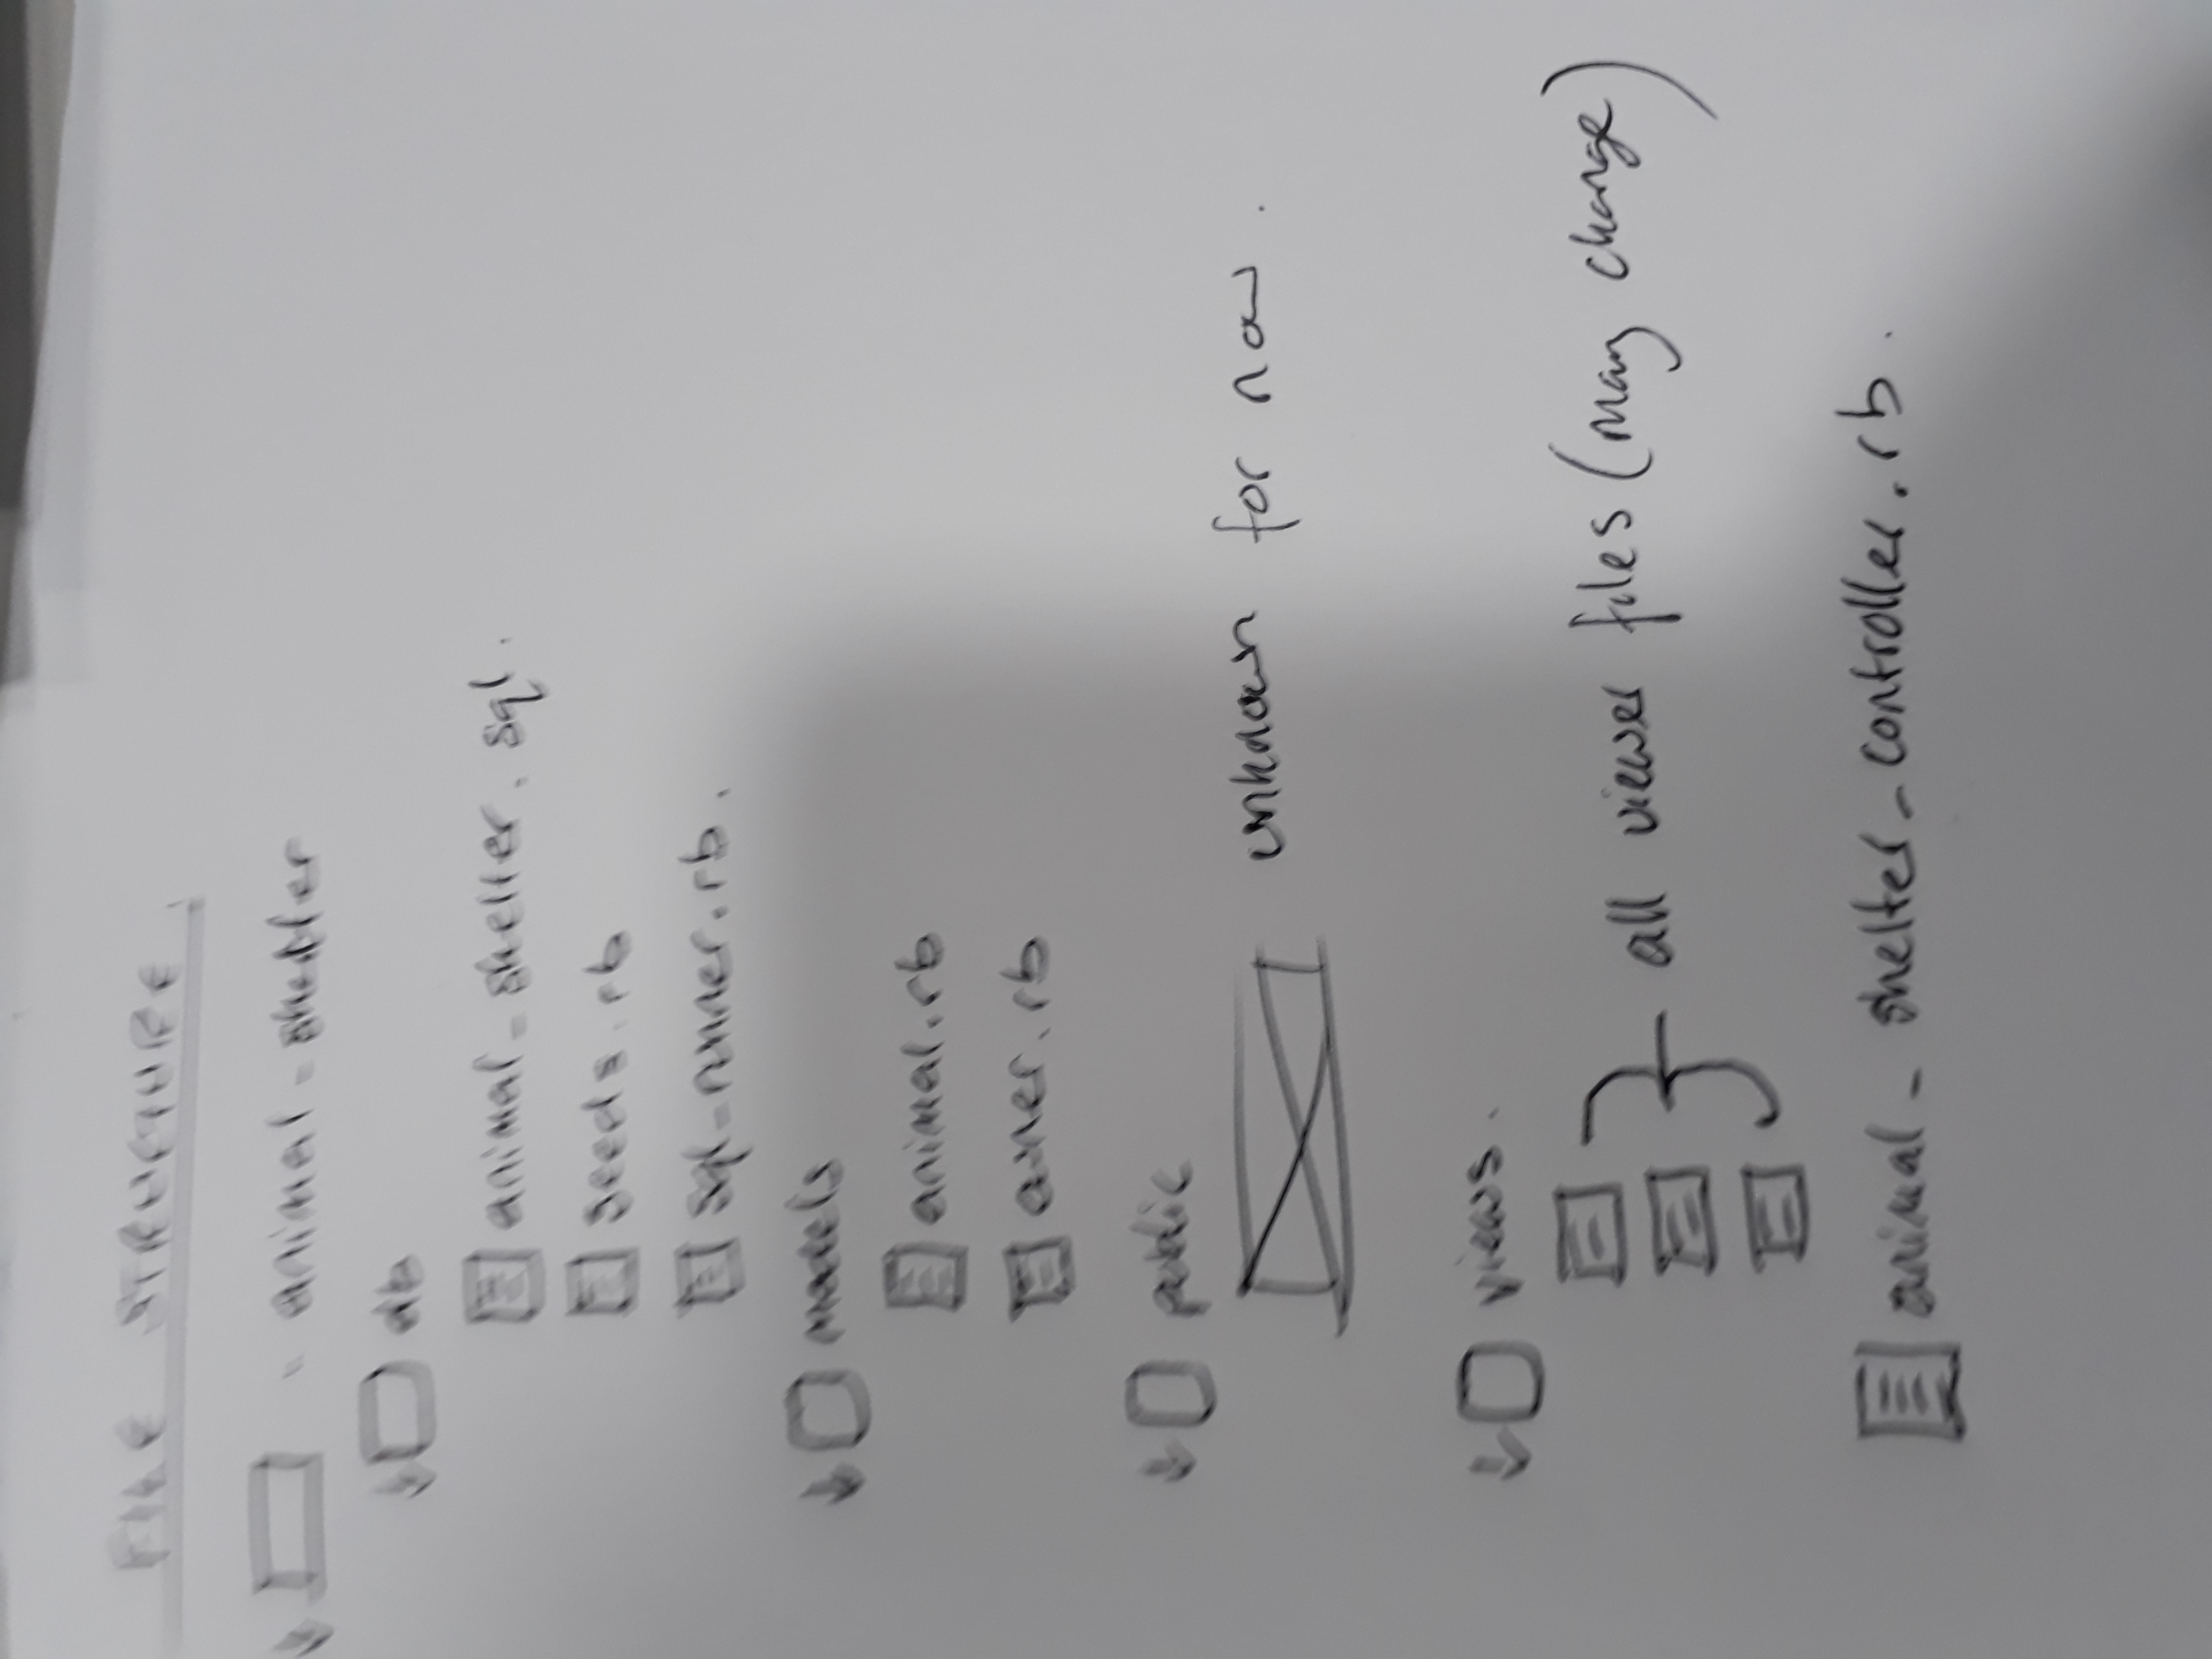 FILE STRUCTURE.
animal_shelter
db
animal_shelter.sql.
seeds.rb
sql_runner.rb.
models
animal.rb
owner.rb
public
unknown for now.
views.
all viewer files (may change)
animal_shelter_controller.rb.